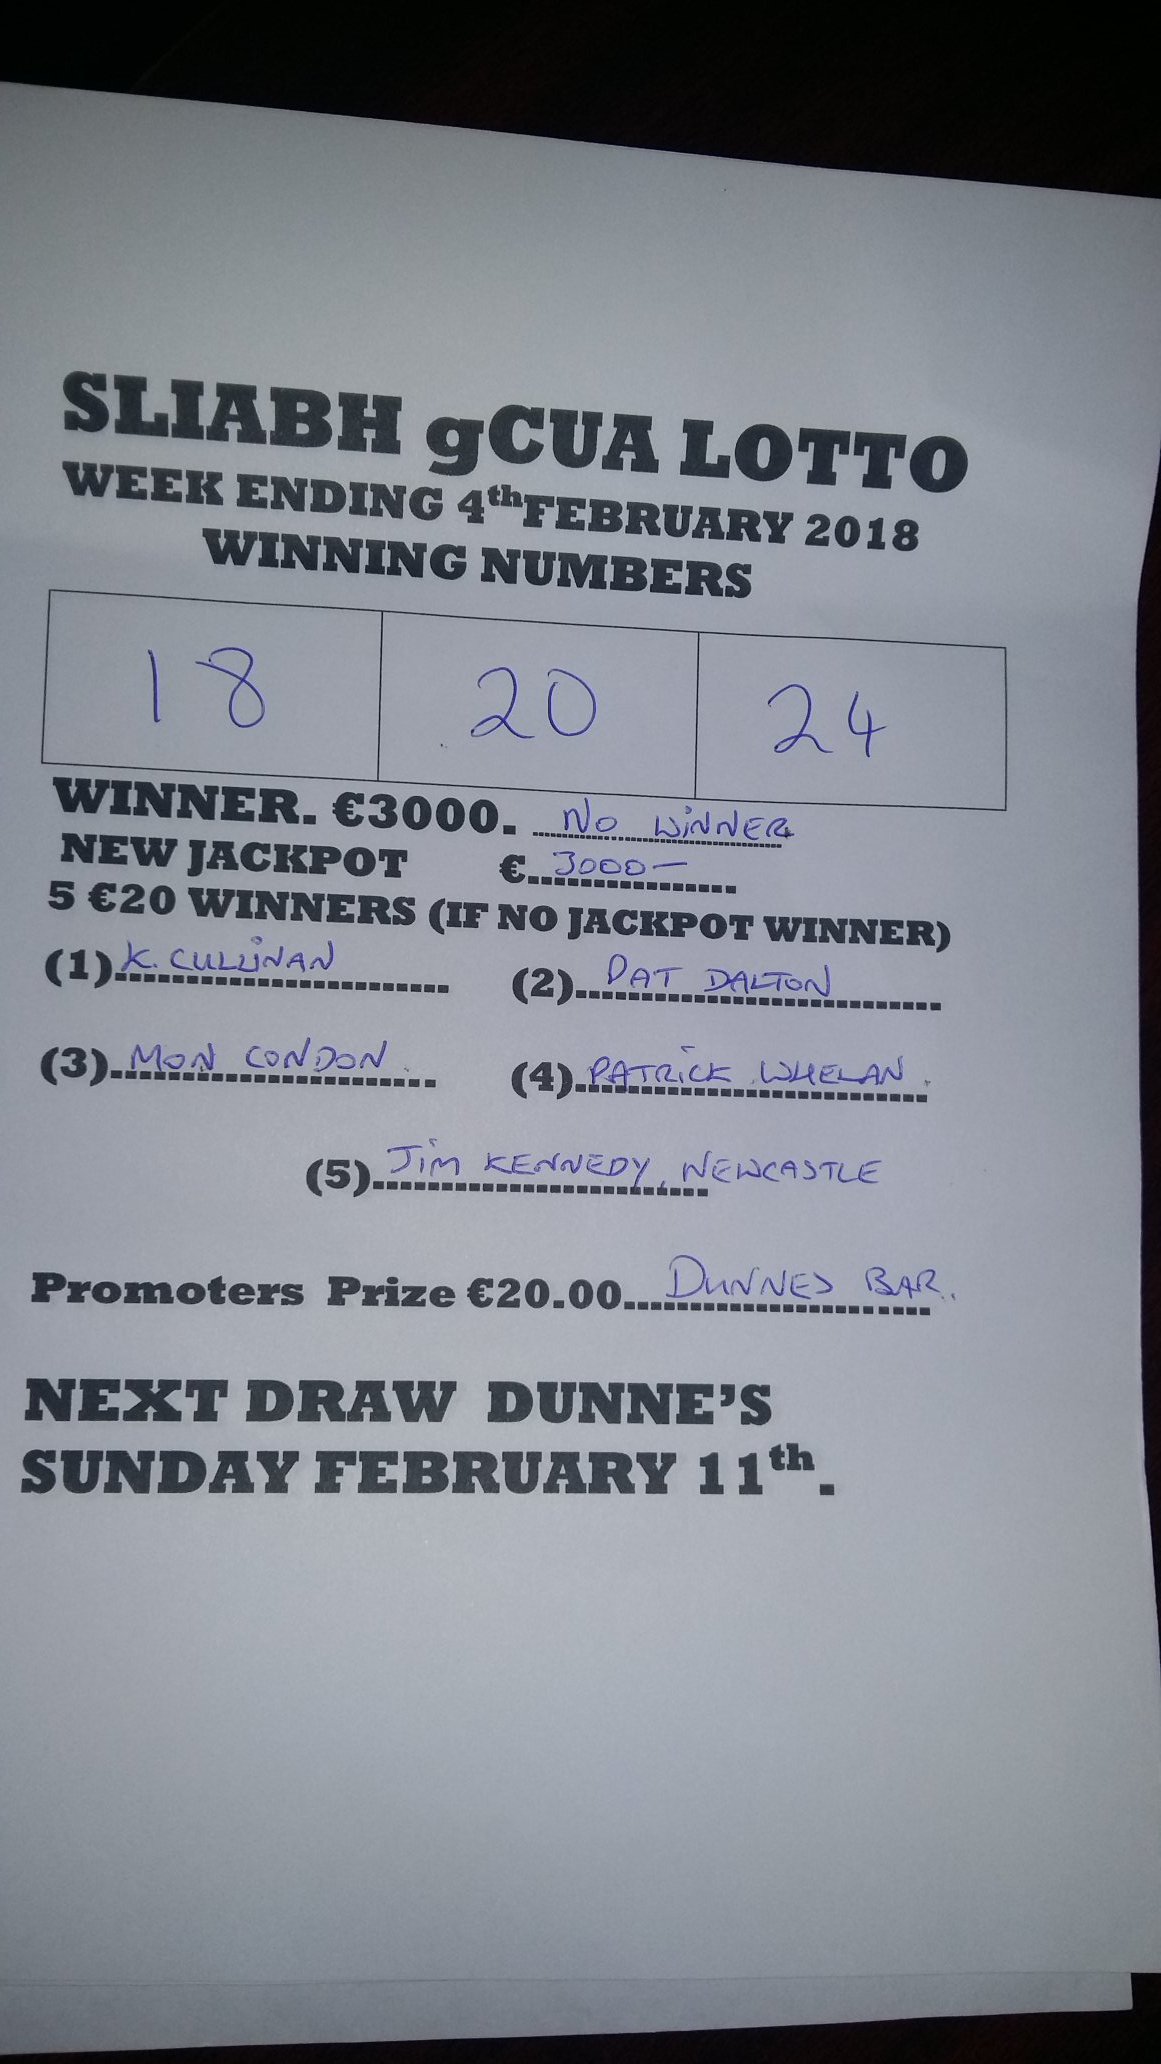 SLIABH gCUA LOTTO
WEEK ENDING 4thFEBRUARY 2018
WINNING NUMBERS
18 20 24
WINNER. €3000. NO WINNER
NEW JACKPOT €. 3000-
5 €20 WINNERS (IF NO JACKPOT WINNER)
(1) K. CULLINAN (2) PAT DALTON
(3) MON CONDON (4) PATRICK WHELAN.
(5) JIM KENNEDY, NEWCASTLE
Promoters Prize €20.00 DUNNES BAR.
NEXT DRAW DUNNE'S
SUNDAY FEBRUARY 11th.